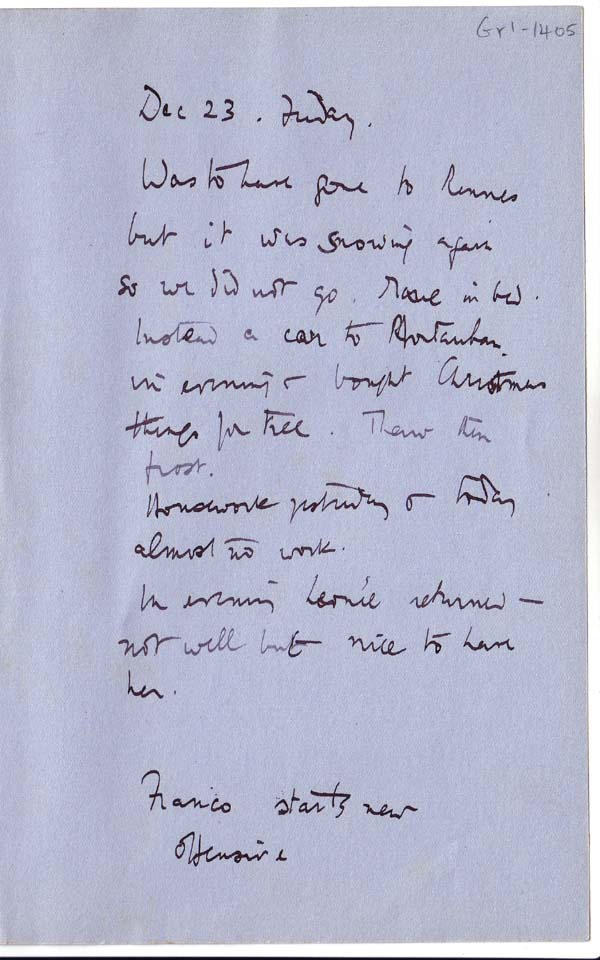 Gr1-1405
Dec 23. Friday.
Was to have gone to Rennes
but it was snowing again
so we did not go. in bed.
Instead a car to Montauban
in evening & bought Christmas
things for tree. Thaw then
frost.
Housework yesterday & today
almost no work.
In evening Leonie returned –
not well but nice to have
her.
Franco starts new
Offensive